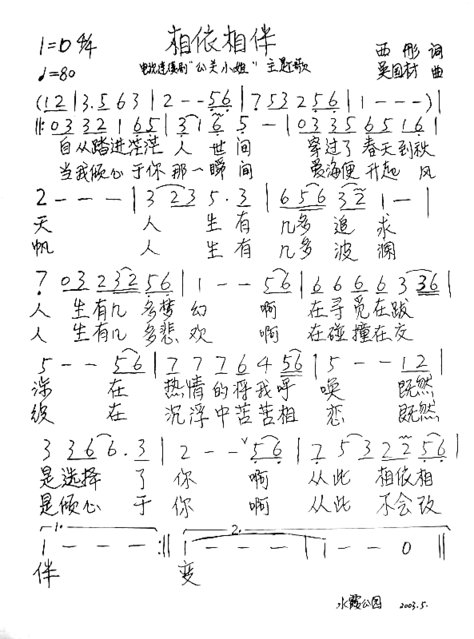 相依相伴
1=D 4/4
♩=80
电视连续剧"公关小姐"主题歌
西彤 词
吴国材 曲
(12|3.563|2--56|753256|1---)|
||:0332165|3165-|03356516|
自从踏进茫茫人世间 穿过了春天到秋
当我倾心于你那一瞬间 爱海便升起风
2---|3235.3|656321-|
天 人生有几多追求
帆 人生有几多波澜
7 0323256|1--56|6666336|
人生有几多梦幻 啊 在寻觅在跋
人生有几多悲欢 啊 在碰撞在交
5--56|7776456|5--12|
涉 在热情的将我呼唤 既然
织 在沉浮中苦苦相恋 既然
3366.3|2--ˇ56|7532256|
是选择了你 啊 从此相依相
是倾心于你 啊 从此不会改
1. 2.
1---:|| 1---|1--0||
伴 变
水霞公园 2003.5.